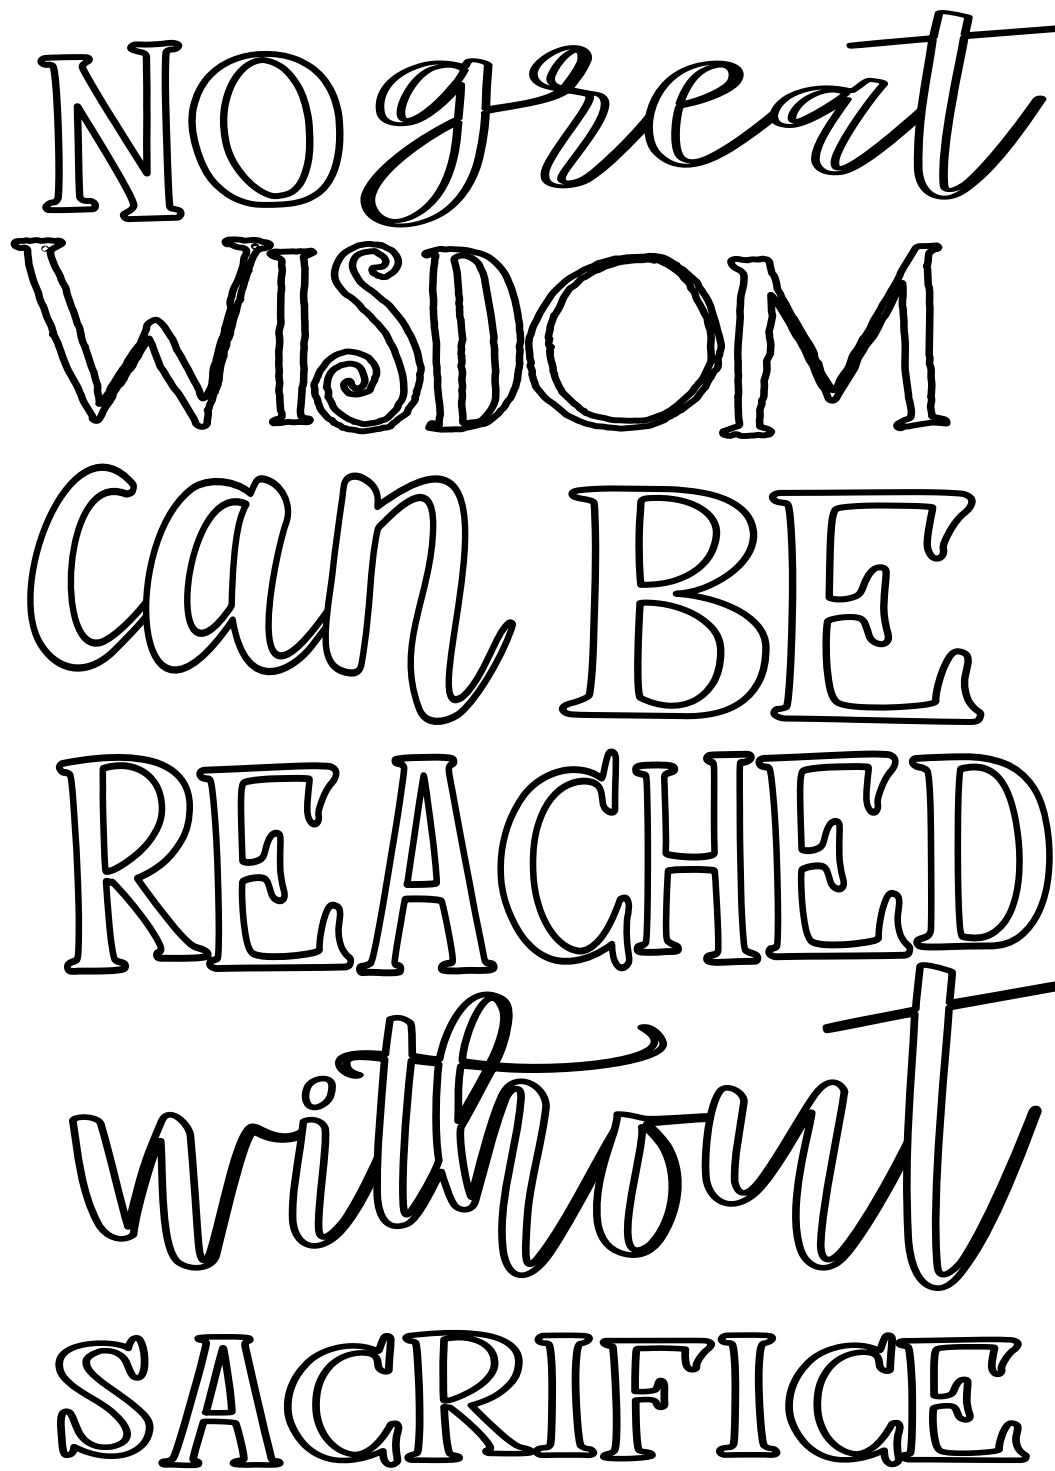 NO great
WISDOM
can BE
REACHED
without
SACRIFICE